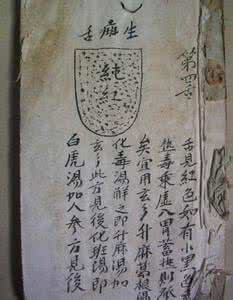 生癍舌
純紅
第四舌
舌見紅色如有小黑
熱毒乘虛入胃蓄熱則
矣宜用玄参升麻葛根
化毒湯解之即升麻湯加
玄参此方見後化班湯即
白虎湯加人參方見後